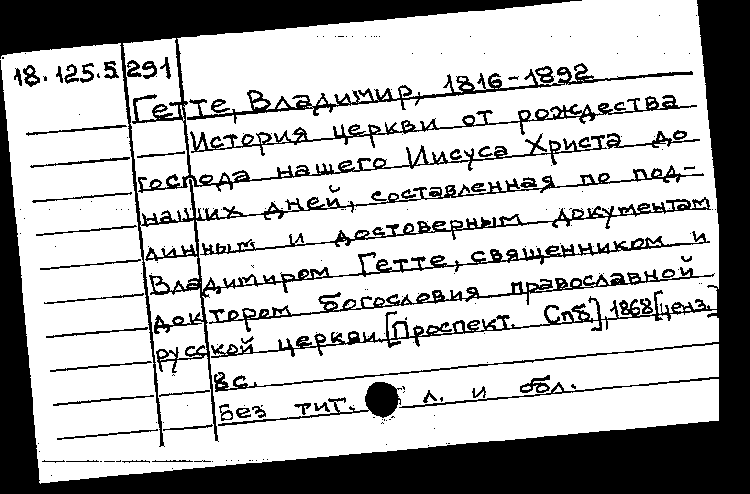 18.125.5.291
Гетте, Владимир, 1816-1892
История церкви от рождества
господа нашего Иисуса Христа до
наших дней, составленная по под-
линным и достоверным документам
Владимиром Гетте, священником и
доктором богословия православной
русской церкви. [Проспект. Спб], 1868 [ценз.]
8с.
Без тит. л. и обл.